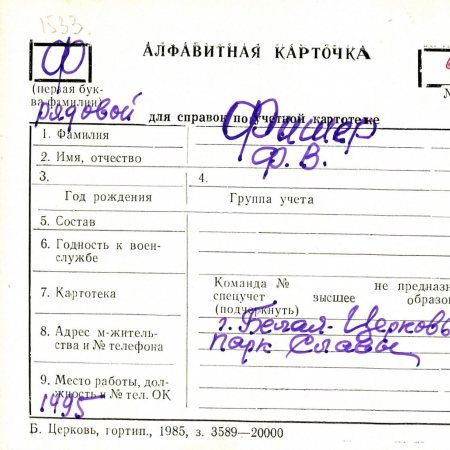 1533
Ф
АЛФАВИТНАЯ КАРТОЧКА
(первая бук-
ва фамилии)
рядовой для справок по учетной картотеке
1. Фамилия Фишер
2. Имя, отчество Ф. В.
3. 4.
Год рождения Группа учета
5. Состав
6. Годность к воен-
службе
7. Картотека Команда № не предназн
спецучет высшее образо
(подчеркнуть)
8. Адрес м-житель-
ства и № телефона г. Белая-Церковь
Парк Славы
9. Место работы, дол-
жность и № тел. ОК
1495
Б. Церковь, гортип., 1985, з. 3589—20000